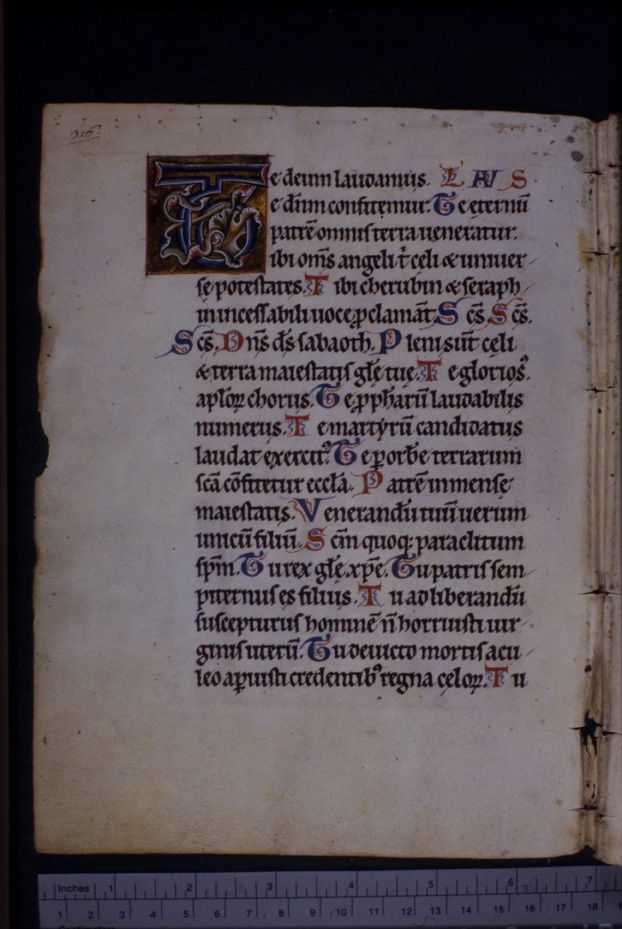 Te deum laudamus. LAUS
e dñm confitemur. Te eternũ
patrẽ omnis terra ueneratur.
ibi oms̃ angeli t̃ celi & uniuer
se potestates. Tibi cherubin & seraph
in incessabili uoce ꝓclamãt Scs̃ Scs̃.
Scs̃. Dns̃ ds̃ sabaoth. Pleni sũt celi
& terra maiestatis glẽ tue. Te glorios᾽.
aplõꝝ chorus. Te ꝓphãrũ laudabilis
numerus. Te martyrũ candidatus
laudat exercit᾽. Te ꝑ orbẽ terrarum
scã cõfitetur eccla᷉. Patrẽ inmense
maiestatis. Venerandũ tuũ uerum
unicũ filiũ. Scm̃ quoq; paraclitum
spm̃. Tu rex glẽ xpẽ. Tu patris sem
piternus es filius. Tu ad liberandũ
suscepturus hominẽ ñ horruisti uir
ginis uterũ. Tu deuicto mortis acu
leo aꝑuisti credentib᾽ regna celoꝝ. Tu
Inches 1 2 3 4 5 6 7
1 2 3 4 5 6 7 8 9 10 11 12 13 14 15 16 17 18